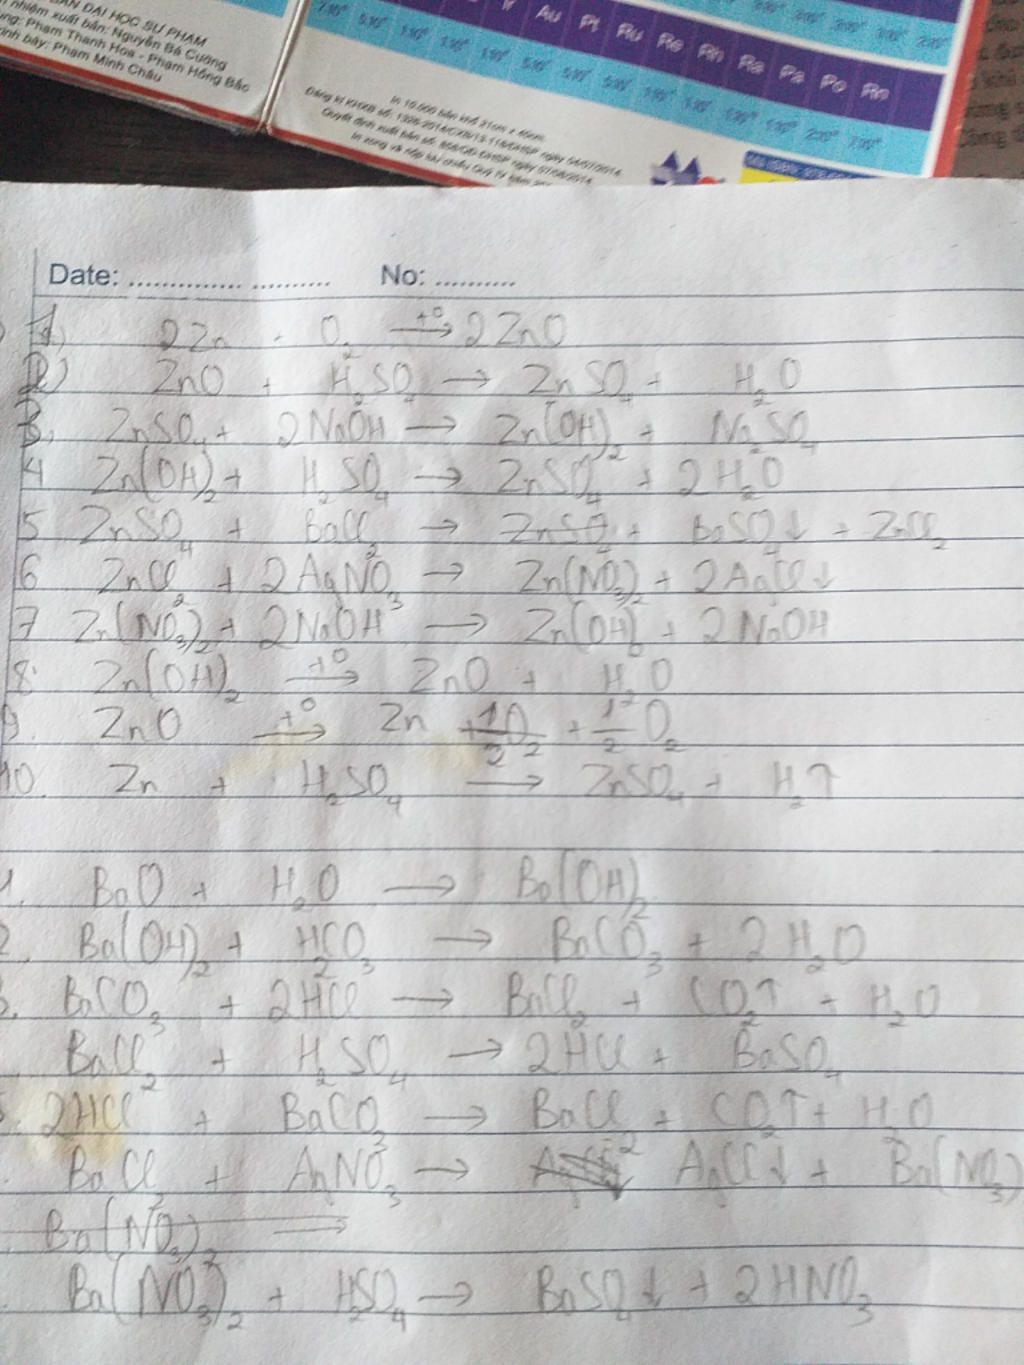 ẢN ĐẠI HỌC SƯ PHẠM
nhiệm xuất bản: Nguyễn Bá Cường
ng: Phạm Thanh Hoa - Phạm Hồng Bắc
ình bày: Phạm Minh Châu
Ir Au Pt Ru Re Rh Ra Pa Po Rn
In 10.000 bản khổ 21cm x
Date: .............. .......... No: ..........
1) 2Zn + O₂ –t°→ 2ZnO
2) ZnO + H₂SO₄ → ZnSO₄ + H₂O
3, ZnSO₄ + 2NaOH → Zn(OH)₂ + Na₂SO₄
4 Zn(OH)₂ + H₂SO₄ → ZnSO₄ + 2H₂O
5 ZnSO₄ + BaCl₂ → ZnSO₄ + BaSO₄↓ + ZnCl₂
6 ZnCl₂ + 2AgNO₃ → Zn(NO₃)₂ + 2AgCl↓
7 Zn(NO₃)₂ + 2NaOH → Zn(OH)₂ + 2NaOH
8. Zn(OH)₂ –t°→ ZnO + H₂O
9. ZnO –t°→ Zn + 1/2 O₂ + 1/2 O₂
10. Zn + H₂SO₄ → ZnSO₄ + H₂↑
1. BaO + H₂O → Ba(OH)₂
2. Ba(OH)₂ + H₂CO₃ → BaCO₃ + 2H₂O
3. BaCO₃ + 2HCl → BaCl₂ + CO₂↑ + H₂O
BaCl₂ + H₂SO₄ → 2HCl + BaSO₄
5. 2HCl + BaCO₃ → BaCl₂ + CO₂↑ + H₂O
BaCl₂ + AgNO₃ → AgCl↓ + Ba(NO₃)
Ba(NO₃)₂ →
Ba(NO₃)₂ + H₂SO₄ → BaSO₄↓ + 2HNO₃